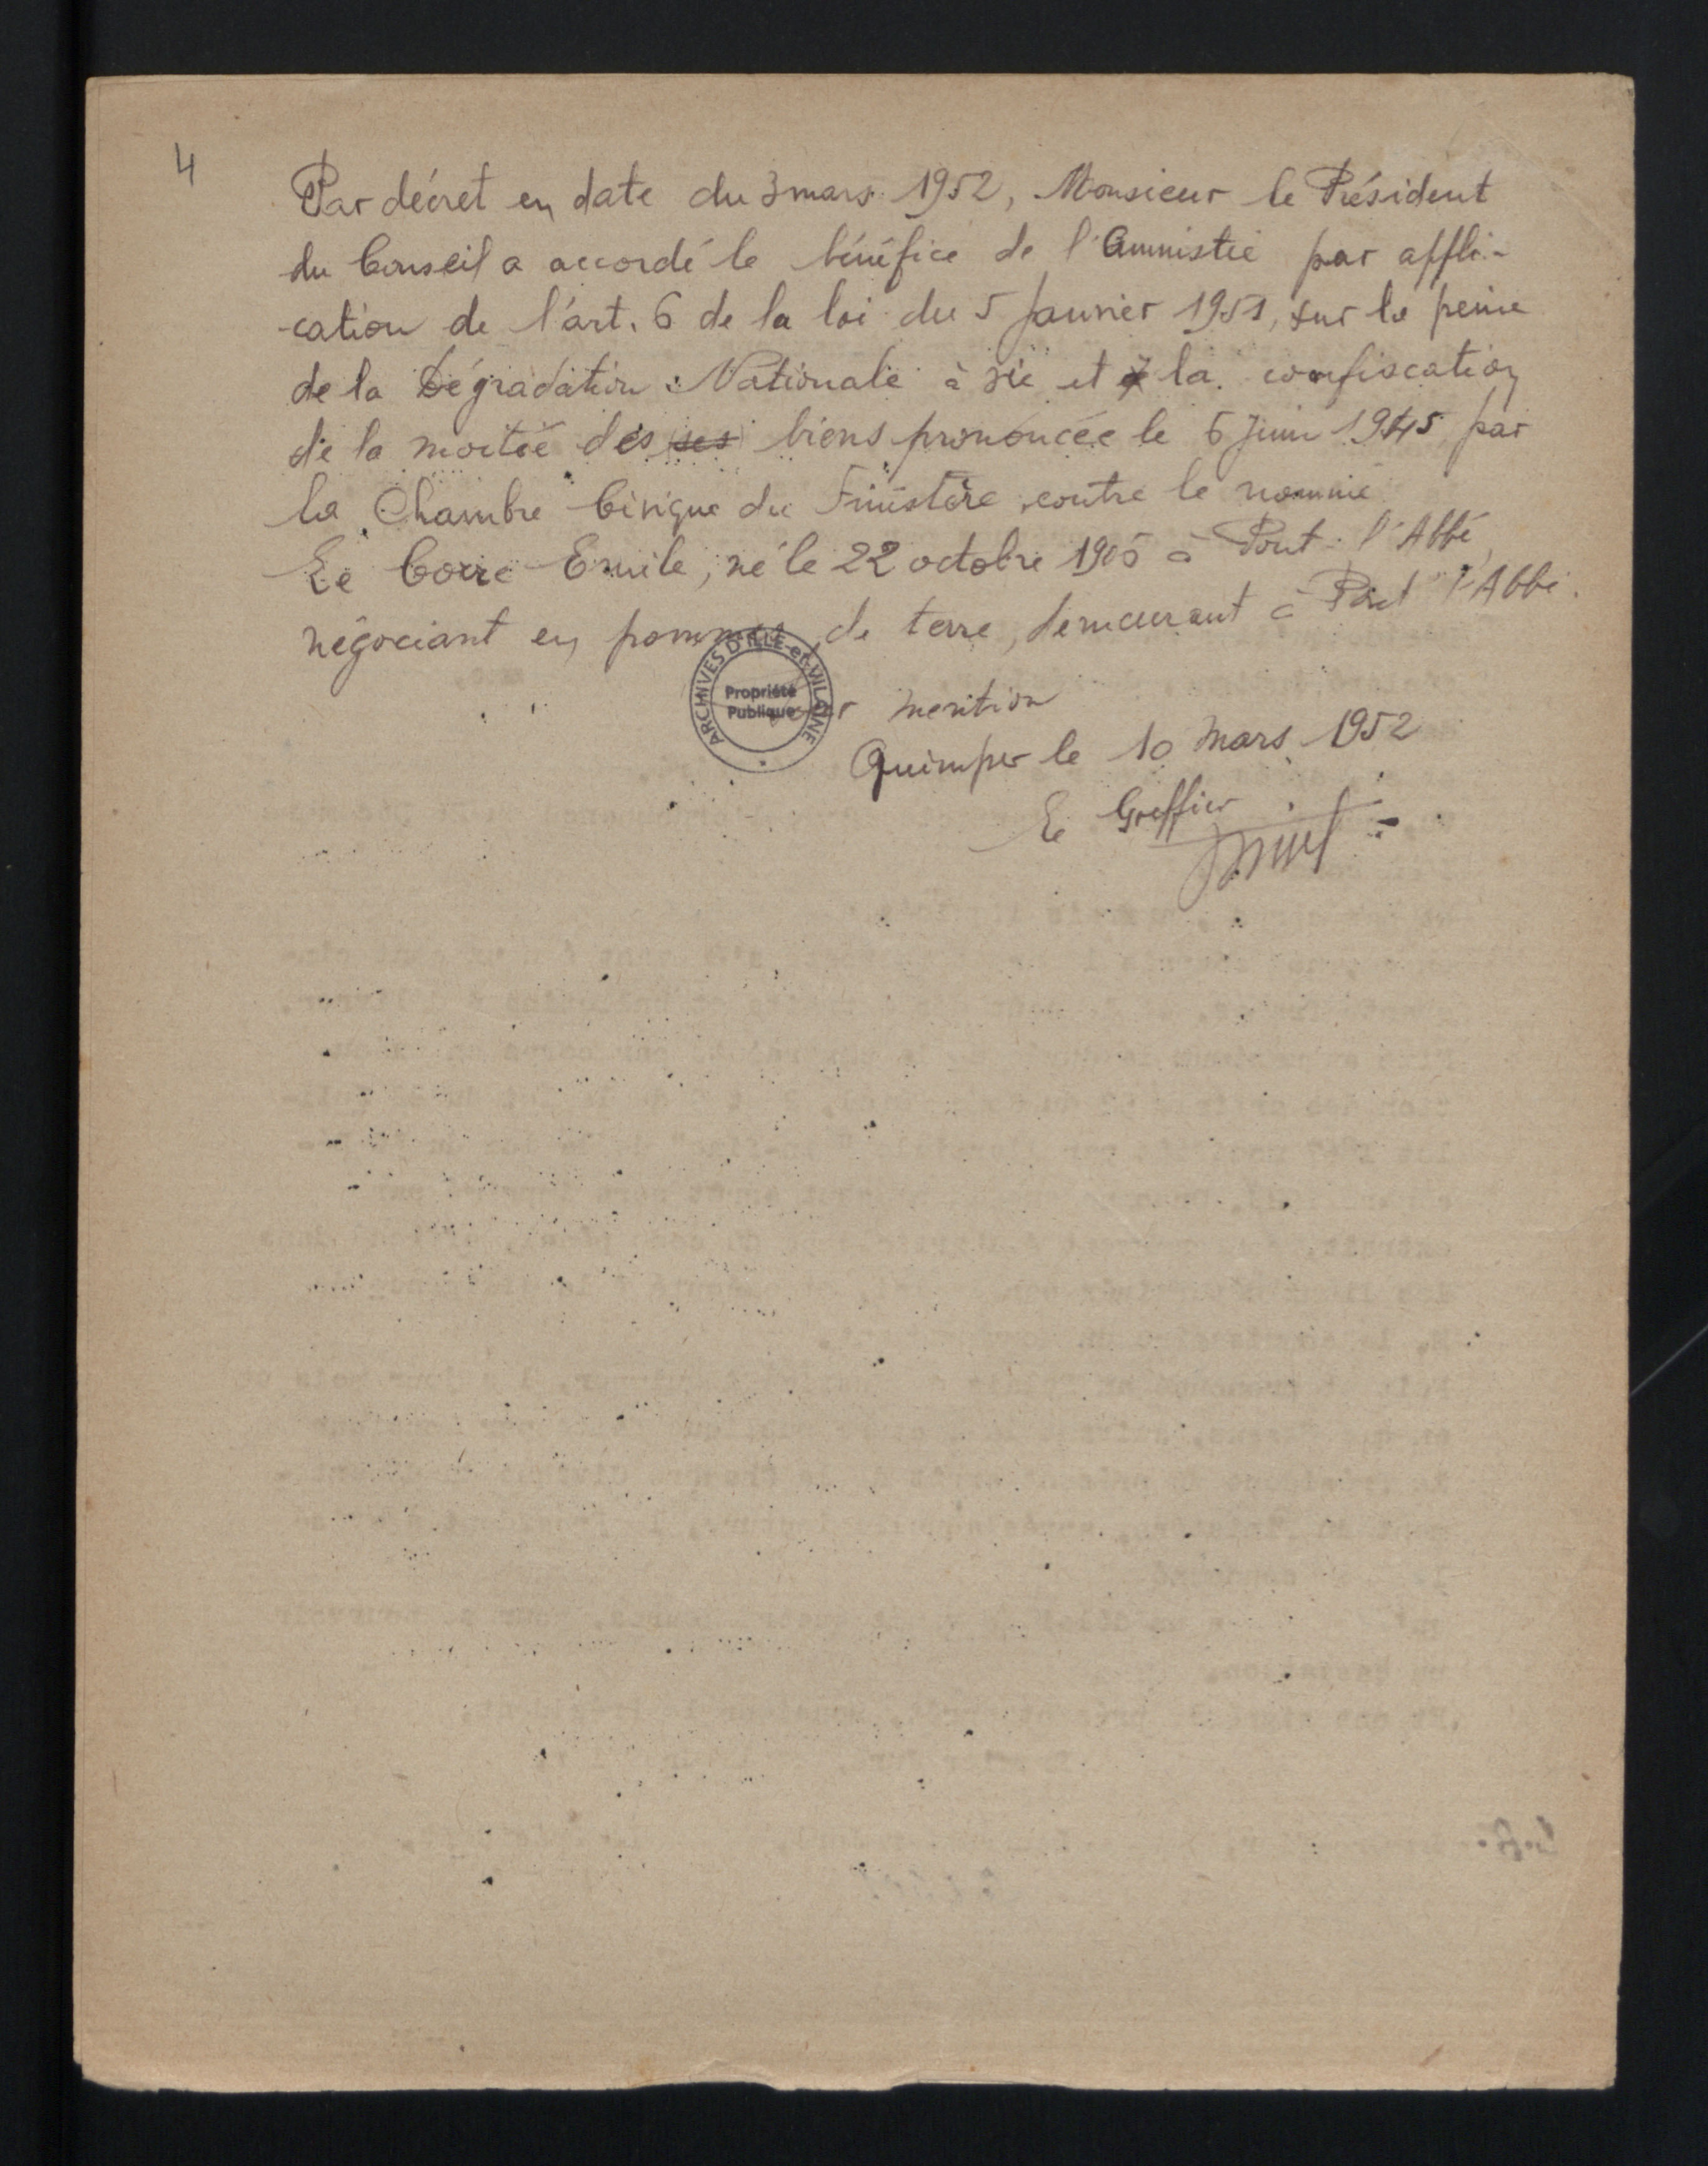 4
Par décret en date du 3 mars 1952, Monsieur le Président
du Conseil a accordé le bénéfice de l'Amnistie par appli-
-cation de l'art. 6 de la loi du 5 Janvier 1951, sur la peine
de la Dégradation Nationale à vie et à la confiscation
de la moitié des ses biens prononcée le 6 Juin 1945 par
la Chambre Civique du Finistère contre le nommé
Le Corre Emile, né le 22 octobre 1905 à Pont-l'Abbé,
négociant en pommes de terre, demeurant à Pont l'Abbé.
ARCHIVES D'ILLE-et-VILAINE
Propriété
Publique
Pour mention
Quimper le 10 Mars 1952
Le Greffier